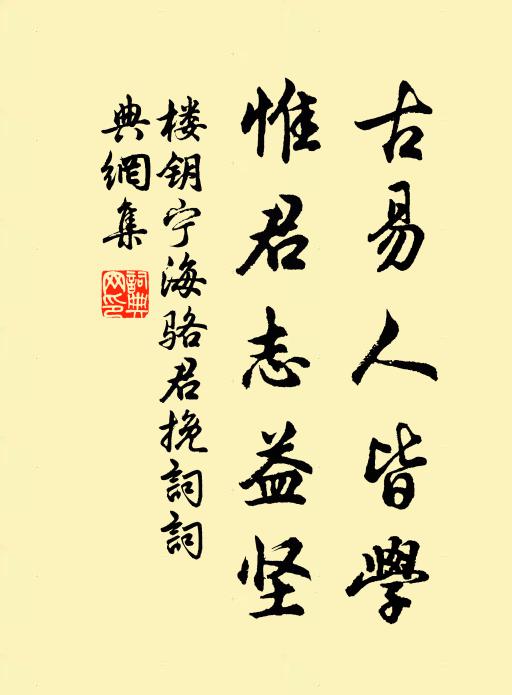 古易人皆學
惟君志益坚
楼钥宁海骆君挽詞詞
典網集
詞典網印